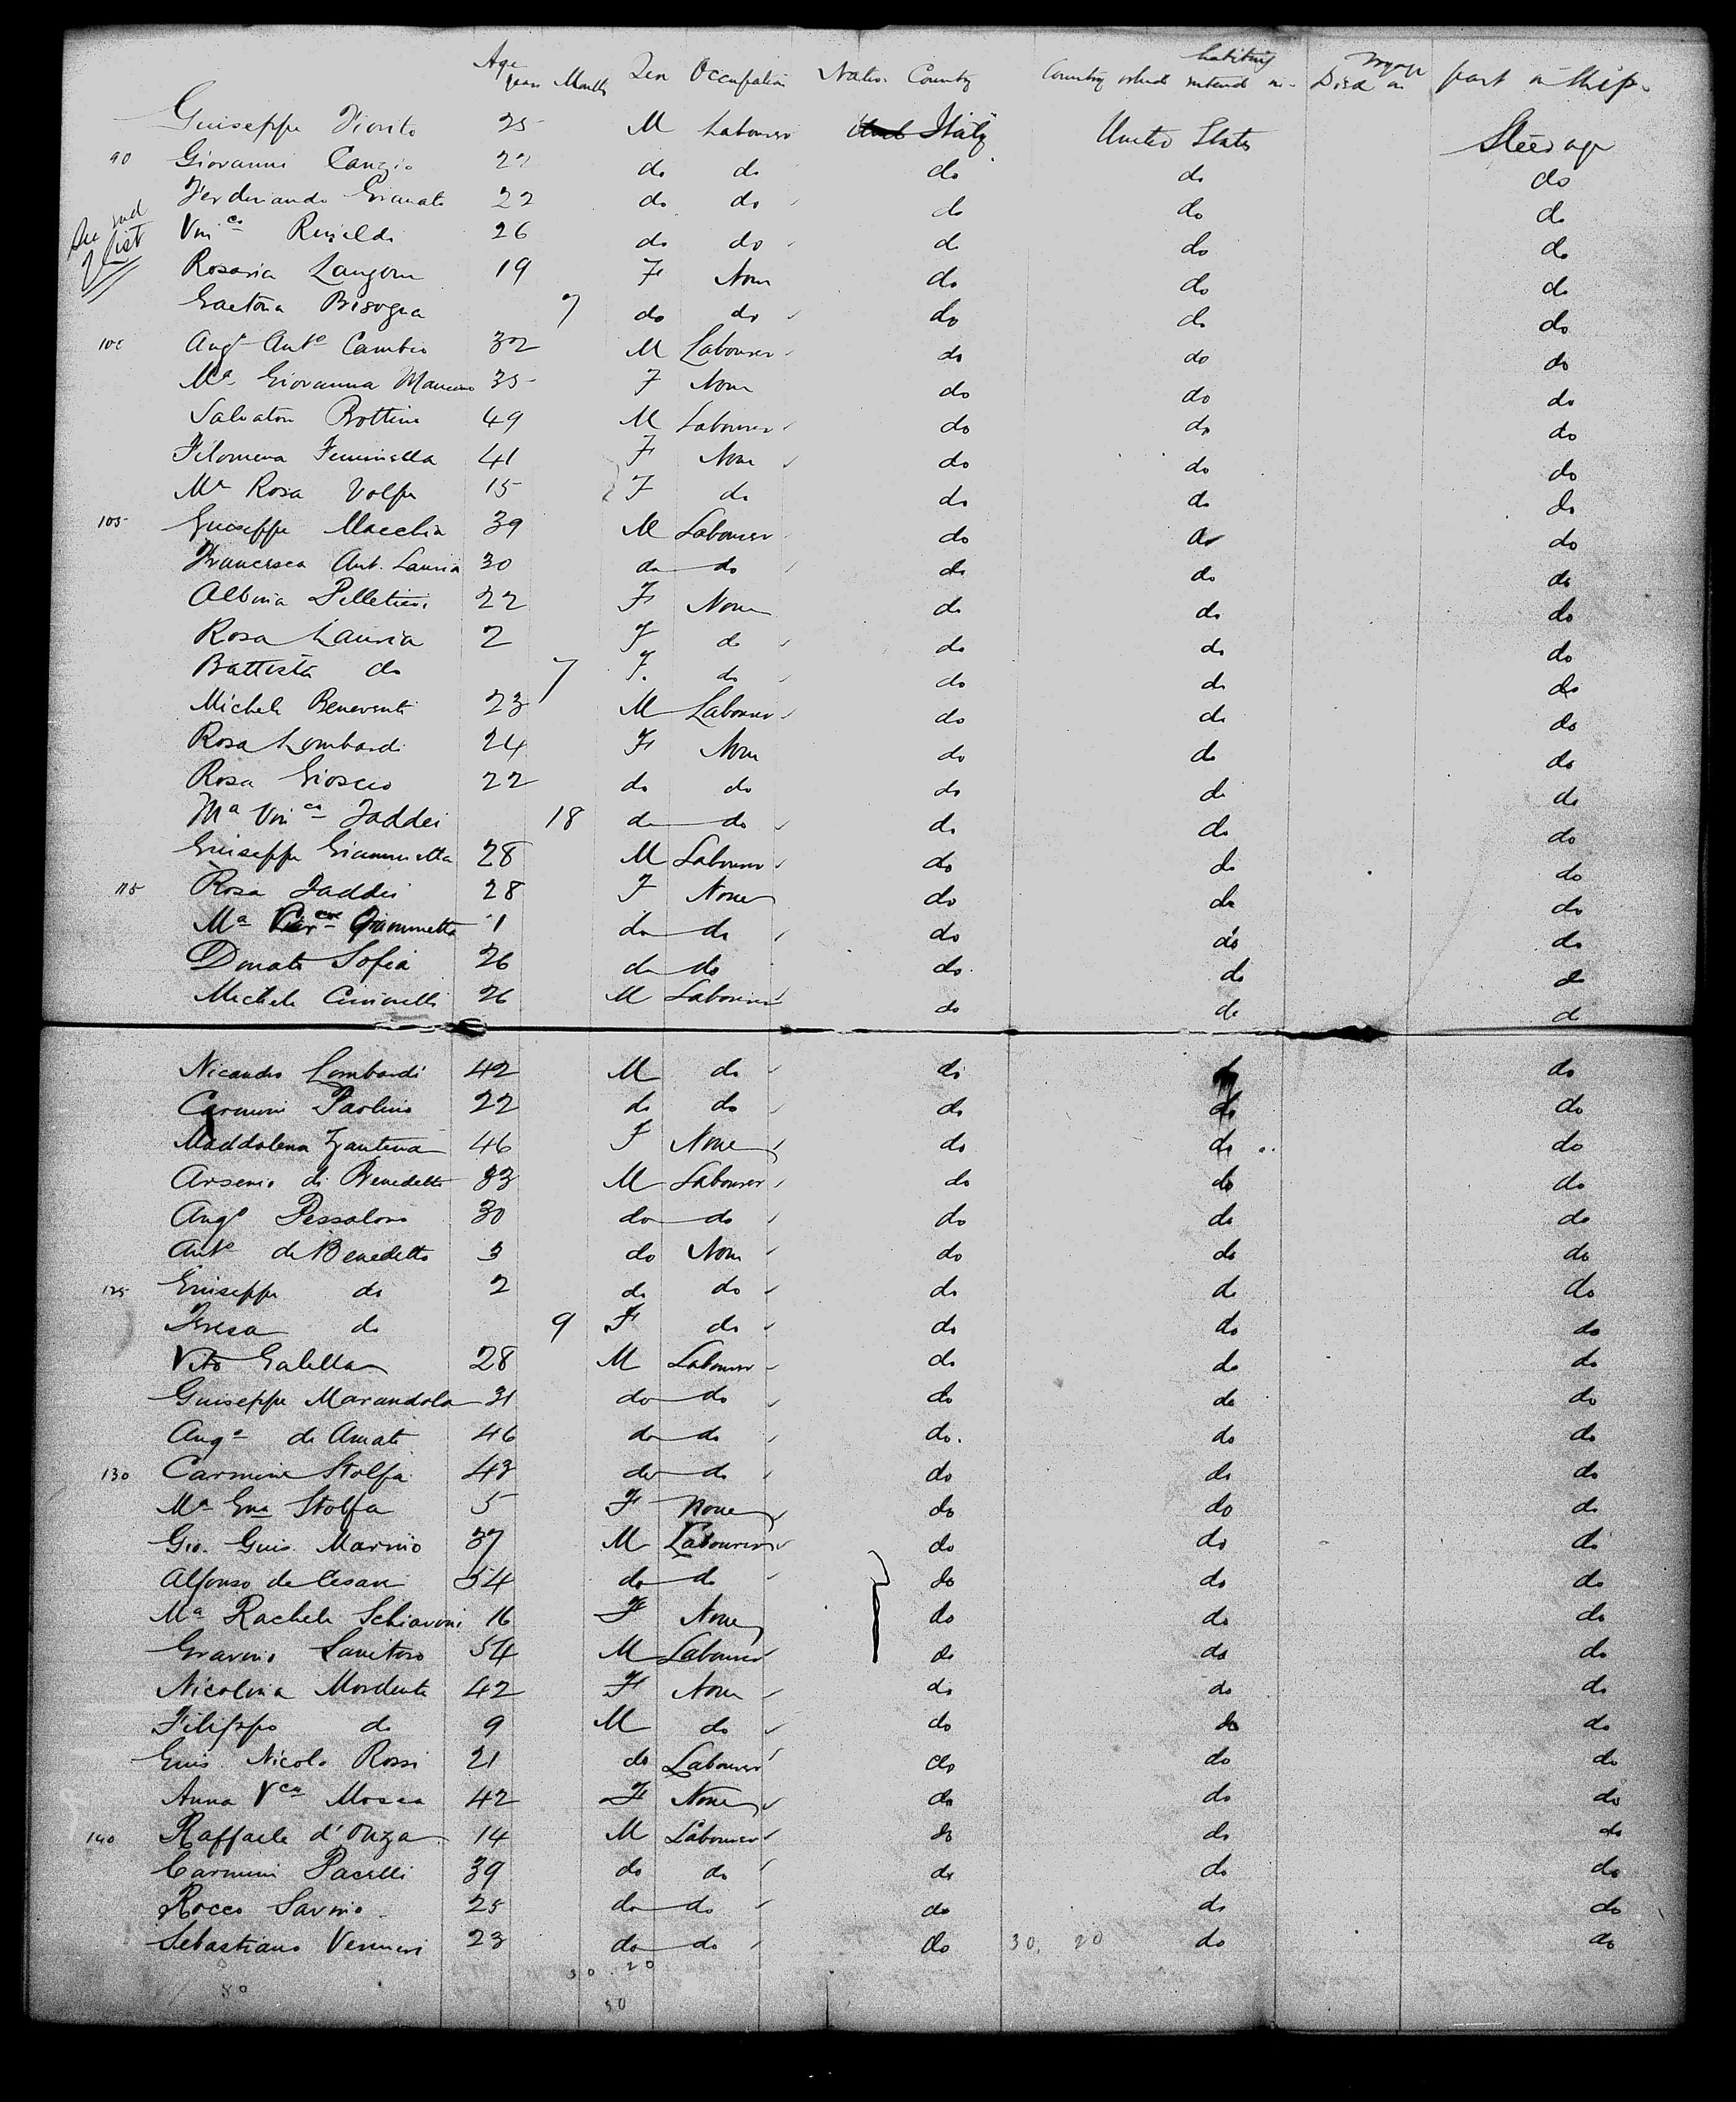 Age years Months Sex Occupation Native Country Country which intend in- habiting Died on voyage part in Ship.
Guiseppe Fiorito 25 M Labourer Italy United States Steerage
90 Giovanni Canzio 22 do do do do do
Ferdinando Granato 22 do do do do do
See end
of list
Vin co Rinaldi 26 do do do do do
Rosaria Langone 19 F None do do do
Gaetana Bisogna 7 do do do do do
100 Ang. Anto Cambio 32 M Labourer do do do
Ma Giovanna Mancino 35 F None do do do
Salvatore Bottino 49 M Labourer do do do
Filomena Feminella 41 F None do do do
Ma Rosa Volpe 15 F do do do do
105 Guiseppe Macchia 39 M Labourer do do do
Francesca Ant. Lauria 30 do do do do do
Albina Pelletieri 22 F None do do do
Rosa Lauria 2 F do do do do
Battista do 7 F. do do do do
Michele Beneventi 23 M Labourer do do do
Rosa Lombardi 24 F None do do do
Rosa Gioscio 22 do do do do do
Ma Vin ca Taddei 18 do do do do do
Guiseppe Giammetta 28 M Labourer do do do
115 Rosa Taddei 28 F None do do do
Ma Giammetta 1 do do do do do
Donato Sofia 26 do do do do do
Michele Ciminelli 26 M Labourer do do do
Nicandro Lombardi 42 M do do do do
Carmine Paolino 22 do do do do do
Maddalena 46 F None do do do
Arsenio di Benedetto 33 M Labourer do do do
Ango Pessolano 30 do do do do do
Anto de Benedetto 3 do None do do do
125 Guiseppe do 2 do do do do do
Teresa do 9 F do do do do
Vito Galella 28 M Labourer do do do
Guiseppe Marandola 31 do do do do do
Ango de Amato 46 do do do. do do
130 Carmine Stolfa 43 do do do do do
Ma Gna Stolfa 5 F None do do do
Gio. Guis. Marino 37 M Labourer do do do
Alfonso de Cesare 54 do do do do do
Ma Rachele Schiavoni 16 F None do do do
Gravino Sanitoro 54 M Labourer do do do
Nicolina Mordente 42 F None do do do
Filippo do 9 M do do do do
Guis. Nicola Rossi 21 do Labourer do do do
Anna Vca Mosca 42 F None do do do
140 Raffaele d'Onza 14 M Labourer do do do
Carmine Pacelli 39 do do do do do
Rocco Savino 25 do do do do do
Sebastiano Venneri 23 do do do 30. 20 do do
30. 20
80 50